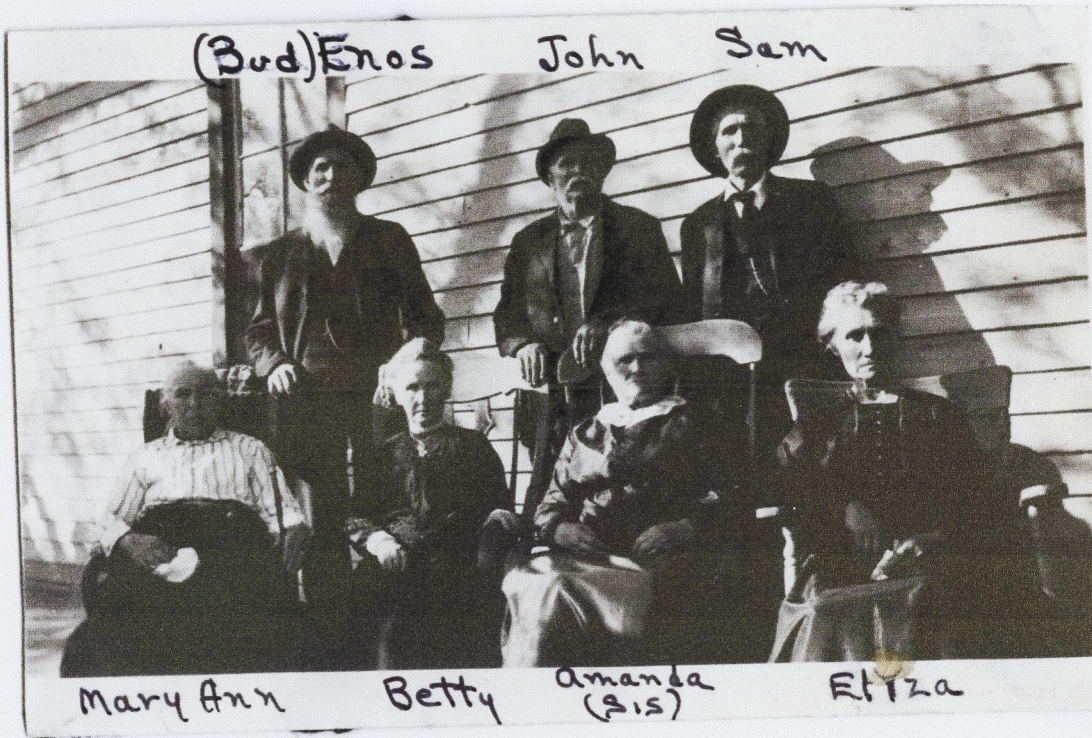 (Bud)Enos John Sam
Mary Ann Betty Amanda Eliza
(Sis)